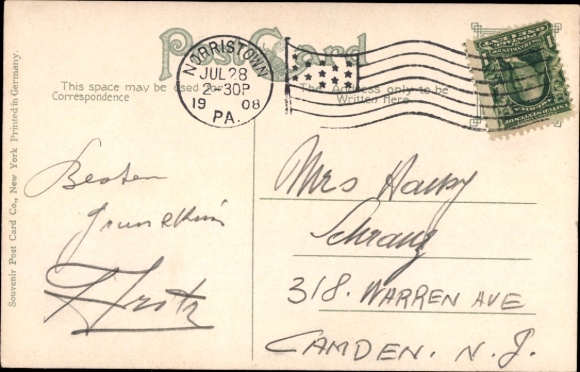 Post Card
This space may be used for
Correspondence
The Address only to be
Written Here
NORRISTOWN
JUL 28
2-30P
1908
PA.
Souvenir Post Card Co., New York Printed in Germany.
Besten
Fritz
Mrs Harry
Schranz
318. WARREN AVE
CAMDEN. N.J.